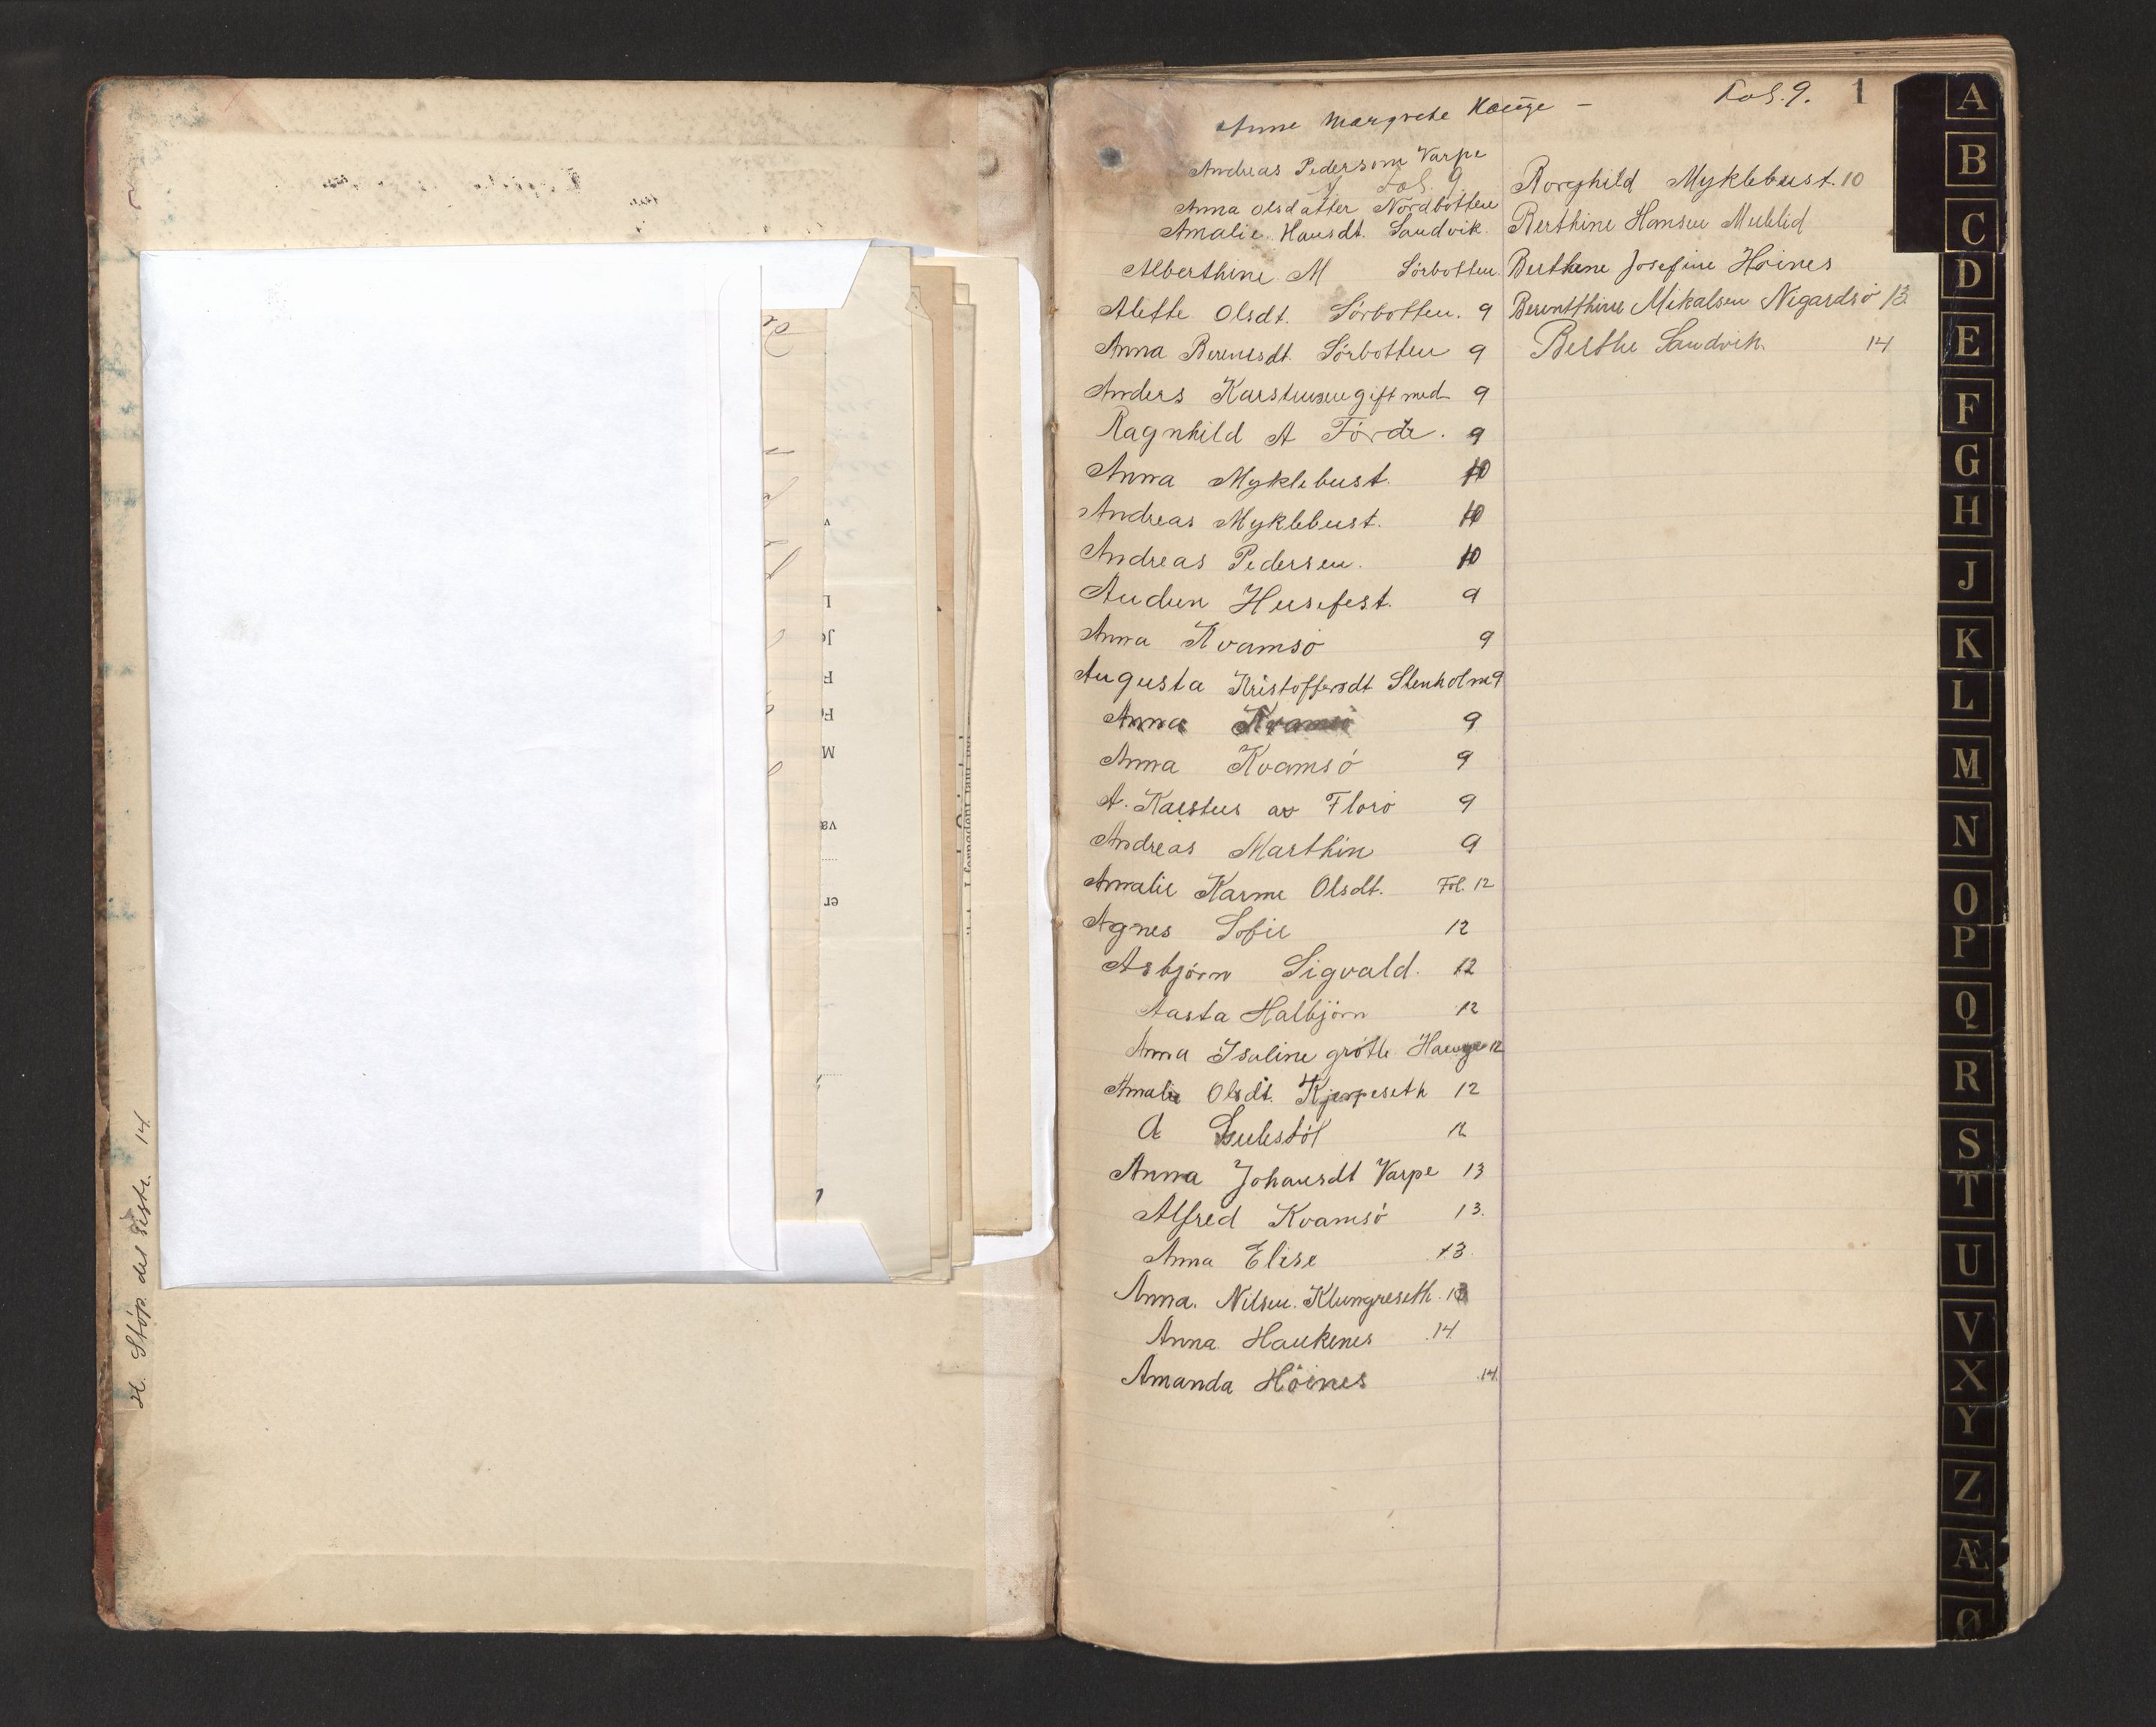 H. Støp. del Distr. 14
v
L
Jo
F
Fo
M
va
er
Anne Margrete Hauge – Fol. 9. 1
Andreas Pedersen Varpe
Fol. 9
Anna Olsdatter Nordbotten
Amalie Hansdt. Sandvik.
Alberthine M Sörbotten.
Alette Olsdt. Sörbotten. 9
Anna Berentsdt. Sörbotten 9
Anders Karstensen gift med 9
Ragnhild A Förde. 9
Anna Myklebust. 10
Andreas Myklebust. 10
Andreas Pedersen. 10
Audun Husefest. 9
Anna Kvamsö 9
Augusta Kristoffersdt Stenholm 9
Anna Kvamsö 9
Anna Kvamsö 9
A. Karstens av Florö 9
Andreas Marthin 9
Amalie Karine Olsdt. Fol. 12
Agnes Sofie 12
Asbjörn Sigvald. 12
Aasta Halbjörn 12
Anna Isaline grötle Hauge 12
Amalie Olsdt. Kjerpeseth 12
A 12
Anna Johansdt Varpe 13
Alfred Kvamsö 13.
Anna Elise 13.
Anna. Nilsen. Klungreseth. 13
Anna Haukenes 14.
Amanda Höines 14.
Borghild Myklebust. 10
Berthine Hansen Meklid
Berthine Josefine Höines
Berentthine Mikalsen Negardsö 13
Berthe Sandvik. 14
A
B
C
D
E
F
G
H
J
K
L
M
N
O
P
Q
R
S
T
U
V
X
Y
Z
Æ
Ø